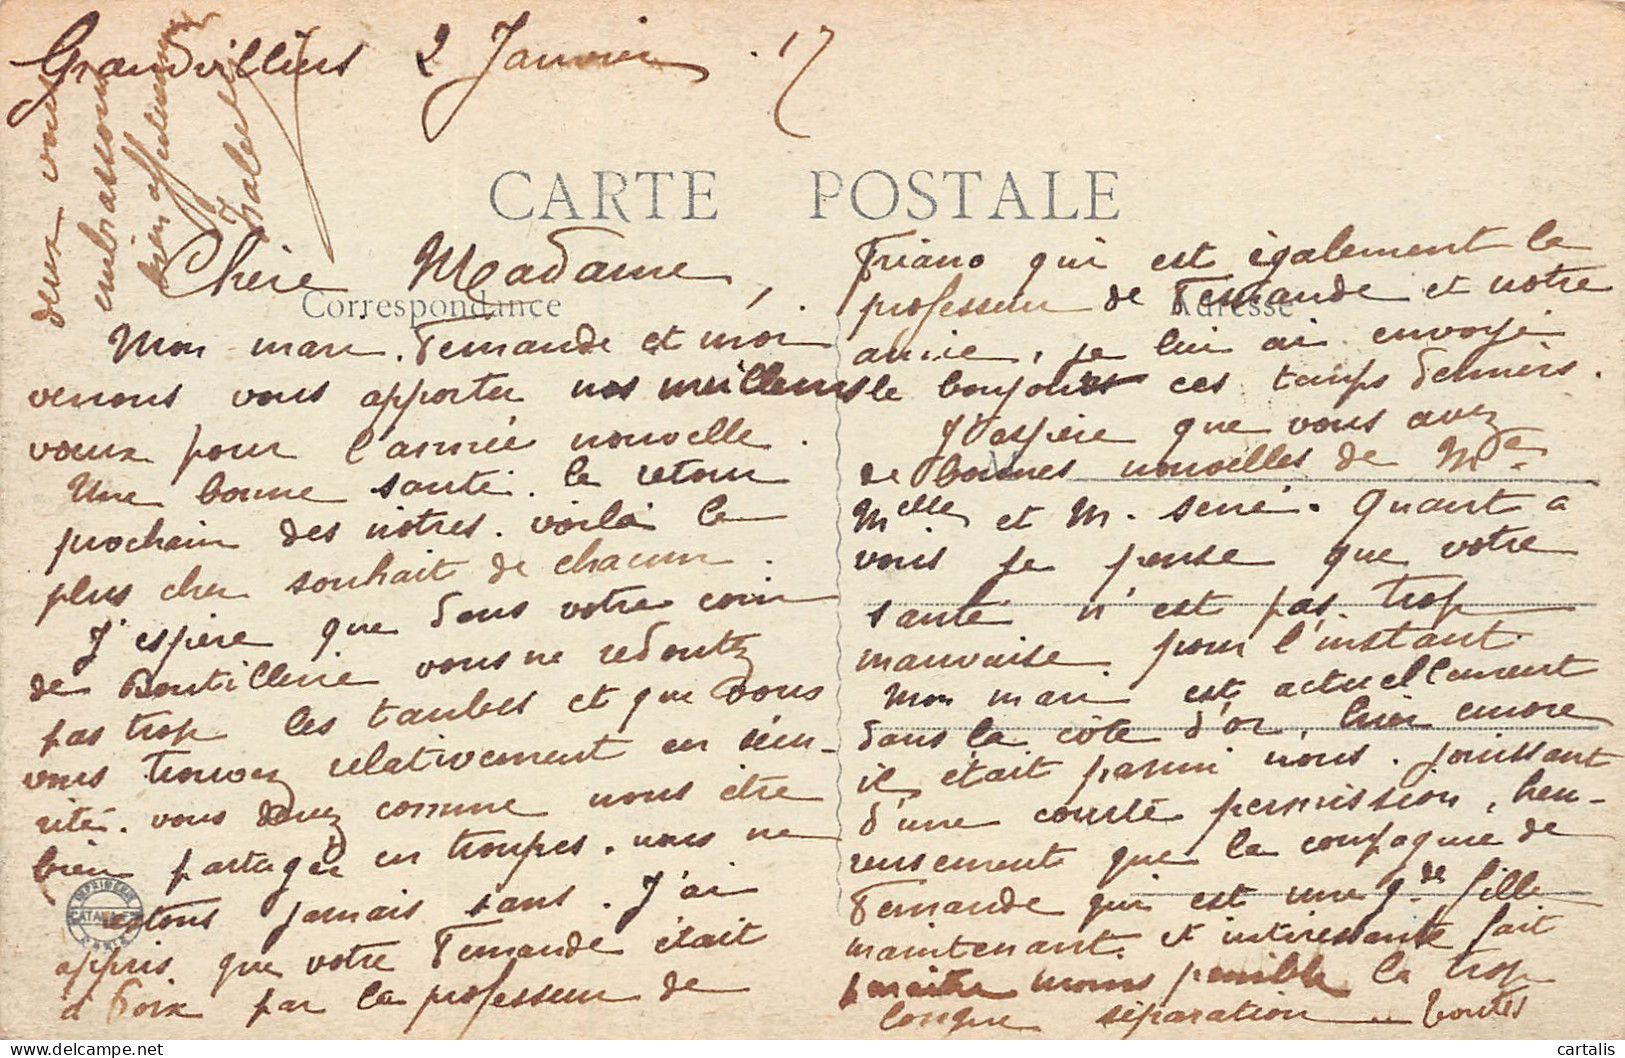 Grandvilliers 2 Janvier . 17
CARTE POSTALE
Correspondance
Adresse
Chère Madame,
Mon mari, Fernande et moi
venons vous apporter nos meilleurs
vœux pour l'année nouvelle.
Une bonne santé. le retour
prochain des nôtres. voilà le
plus cher souhait de chacun.
J'espère que dans votre coin
de Boutillerie vous ne redoutez
pas trop les taubes et que vous
vous trouvez relativement en sécu-
rité. vous devez comme nous être
bien partagée en troupes. nous ne
restons jamais sans. J'ai
appris que votre Fernande était
à Poix par le professeur de
Piano qui est également le
professeur de Fernande et notre
amie, je lui ai envoyé
le bonjour ces temps derniers.
J'espère que vous avez
de bonnes nouvelles de Mme
Melle et M. Séné. Quant à
vous je pense que votre
santé n'est pas trop
mauvaise pour l'instant.
Mon mari est actuellement
dans la côte d'or, hier encore
il était parmi nous. jouissant
d'une courte permission, heu-
reusement que la compagnie de
Fernande qui est une gde fille
maintenant. et intéressante fait
paraître moins pénible la trop
longue séparation .. toutes
deux vous
embrassons
bien affectueusement
IMPRIMERIE
CATALA
PARIS
cartalis
delcampe.net